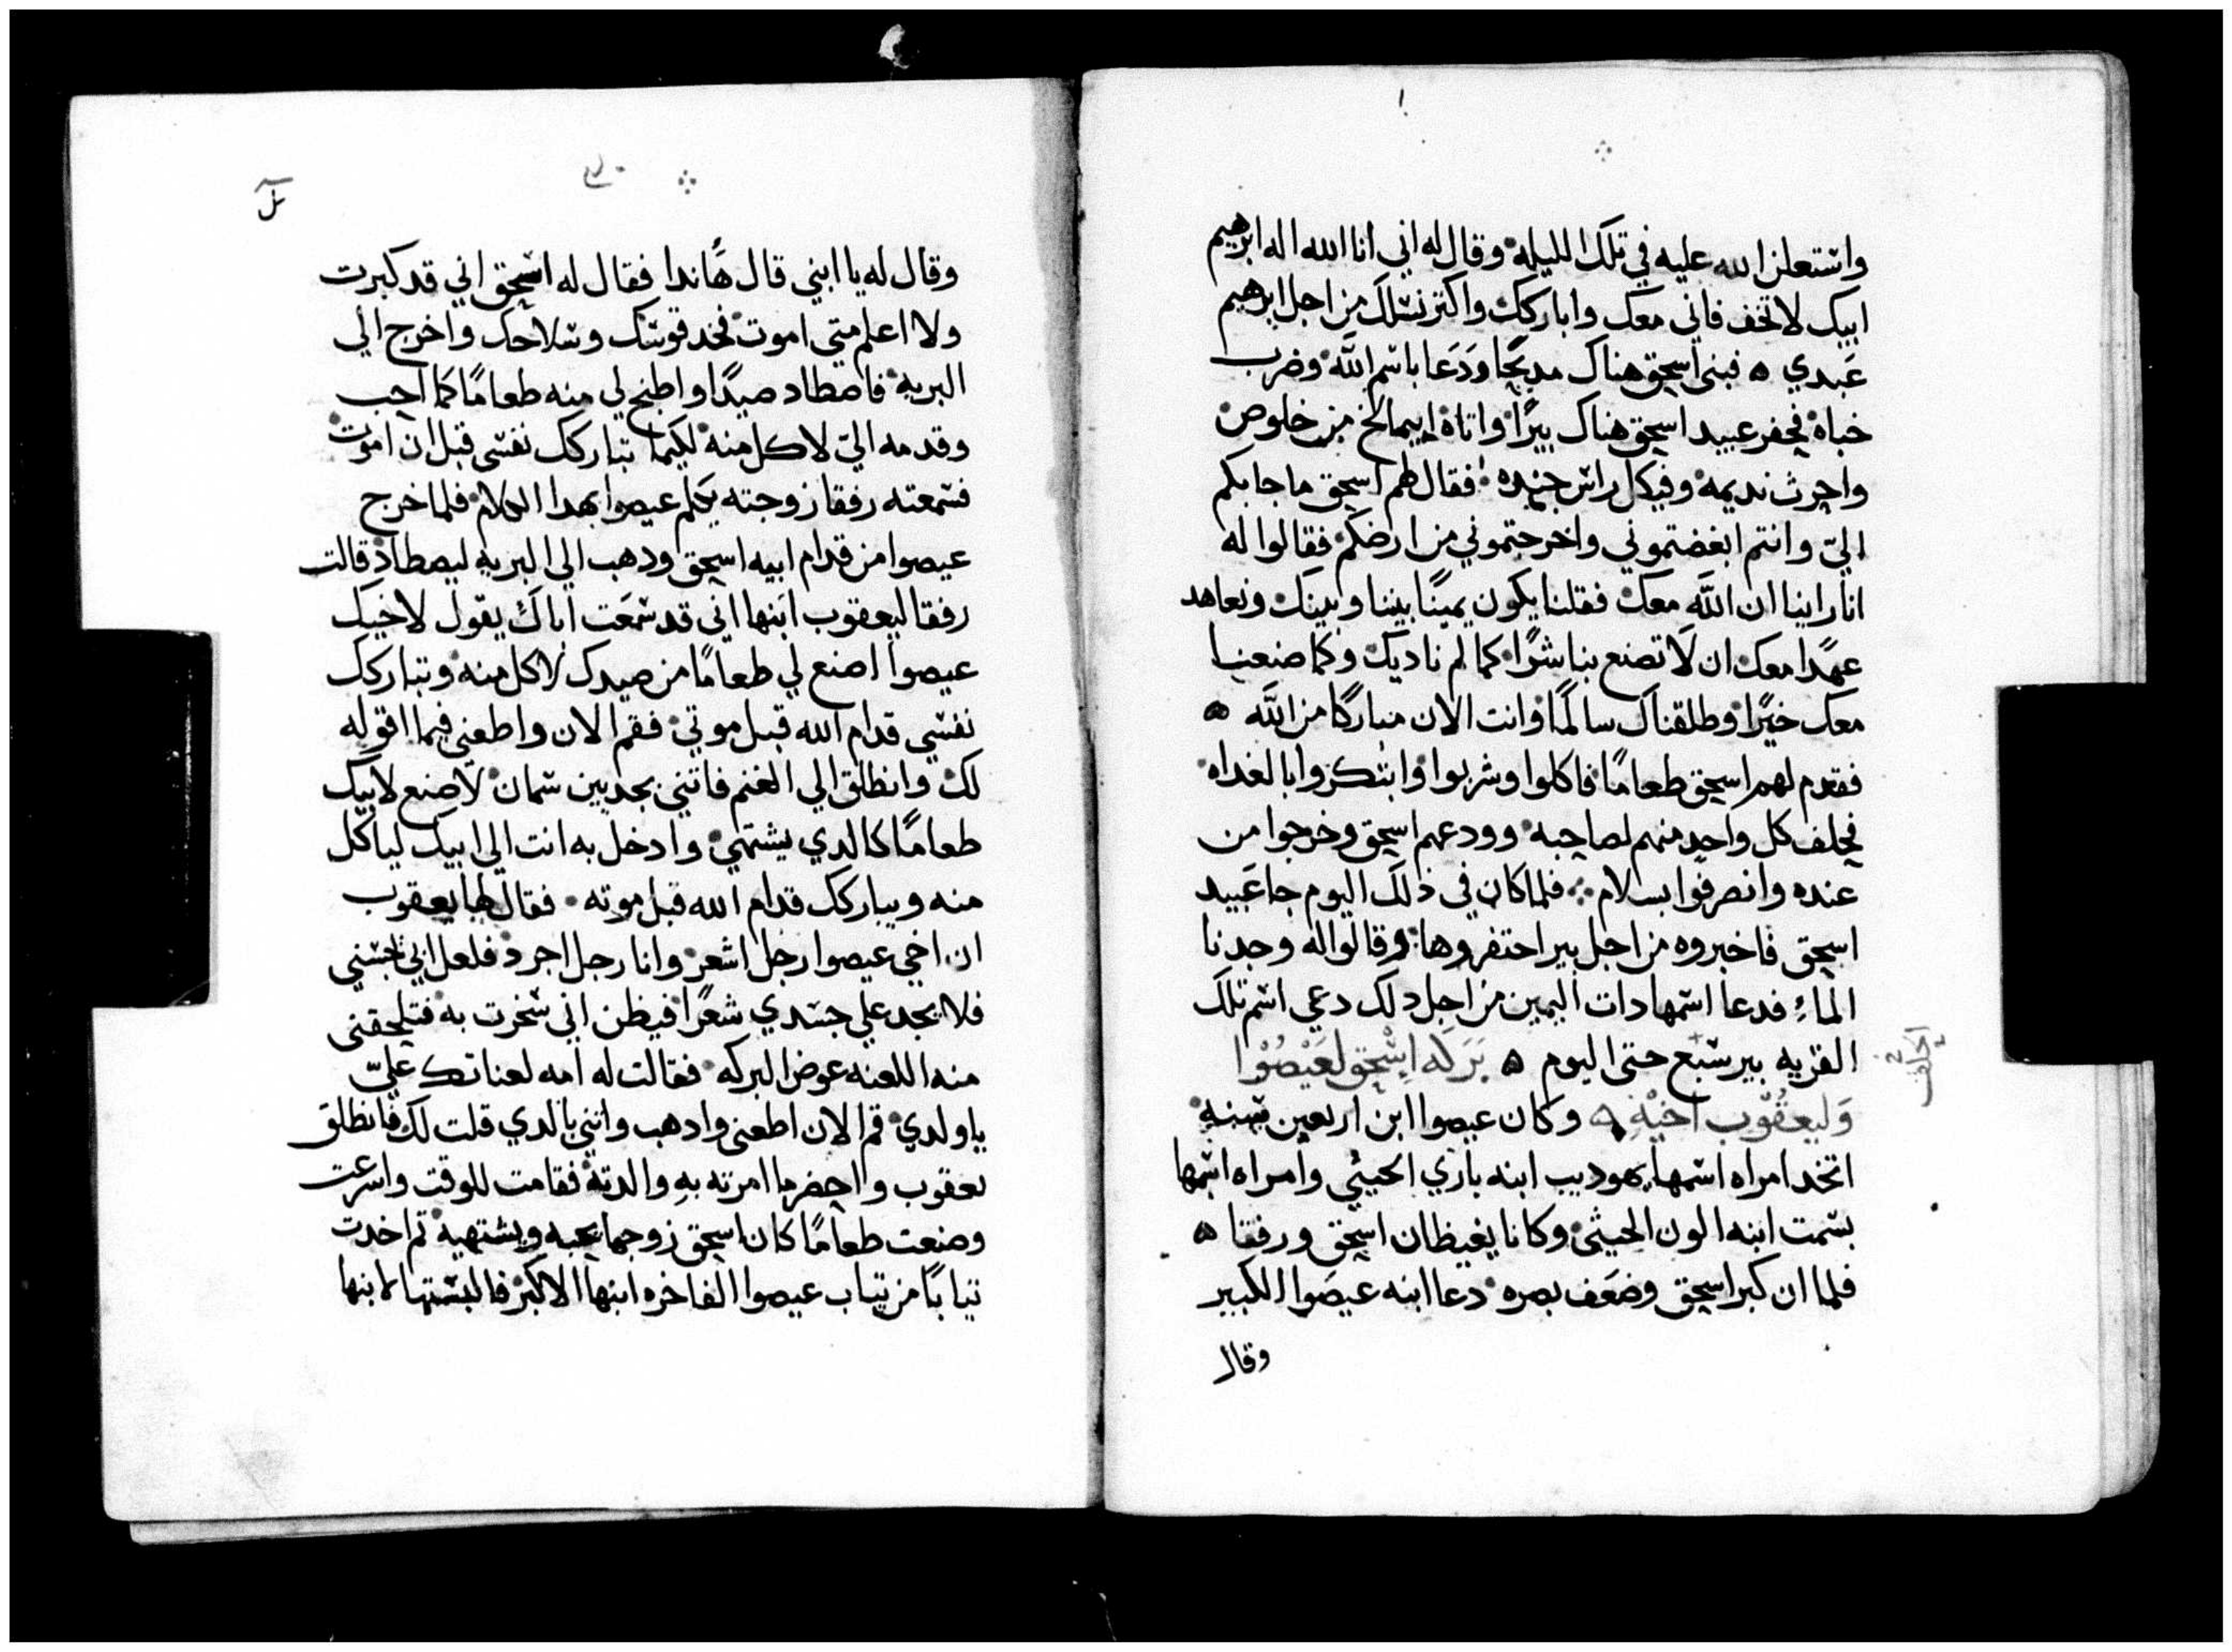 واستعلن الله عليه في تلك الليله وقال له اني انا الله اله ابرهيم
ابيك لا تخف فاني معك واباركك واكتر نسلك من اجل ابرهيم
عبدي ه فبنى اسحق هناك مدبحًا ودَعَا باسم اللّه وضرب
خباه فحفر عبيد اسحق هناك بيرًا واتاه ابيمالخ من خلوص
واحرث نديمه وفيكل راس جنده فقال لهم اسحق ما جابكم
اليّ وانتم ابغضتموني واخرجتموني من ارضكم فقالوا له
انا راينا ان اللّه معك فقلنا يكون يمينًا بيننا وبينك ونعاهد
عهدًا معك ان لا تصنع بنا شرًا كما لم ناديك وكما صنعنا
معك خيرًا وطلقناك سالمًا وانت الان مباركًا من اللّه ه
فقدم لهم اسحق طعامًا فاكلوا وشربوا وابتكروا بالغداه
فحلف كل واحدٍ منهم لصاحبه وودعهم اسحق وخرجوا من
عنده وانصرفوا بسلام فلما كان في ذلك اليوم جا عَبيد
اسحق فاخبروه من اجل بير احتفروها وقالوا له وجدنا
الماءِ فدعا اسمها دات اليمين من اجل دلك دعي اسم تلك
القريه بير سبع حتى اليوم ه بَرَكه اسْحق لعَيْصُوْا
وَليعقُوْب اخيْهِ ه وكان عيصوا ابن اربعين سنه
اتخد امراه اسمها يهوديب ابنه باري الحيثي وامراه اسمها
بسمت ابنه الون الحيثي وكانا يغيظان اسحق ورفقا ه
فلما ان كبر اسحق وضعَف بصره دعا ابنه عيصَوا الكبير
وقال
وقال له يا ابني قال هاندا فقال له اسحق اني قد كبرت
ولا اعلم متى اموت فخد قوسك وسلاحك واخرج الي
البريه فاصطاد صيدًا واطبخ لي منه طعامًا كما احب
وقدمه اليّ لاكل منه لكيما تباركك نفسى قبل ان اموت
فسمعته رفقا زوجته يكلم عيصوا بهدا الكلام فلما خرج
عيصوا من قدام ابيه اسحق ودهب الي البريه ليصطاد قالت
رفقا ليعقوب ابنها اني قد سمعَت اباك يقول لاخيك
عيصوا اصنع لي طعامًا من صيدك لاكل منه وتباركك
نفسي قدام الله قبل موتي فقم الان واطعني فيما اقوله
لك وانطلق الي الغنم فاتني بجديين سمان لاصنع لابيك
طعامًا كالدي يشتهي وادخل به انت الي ابيك لياكل
منه ويباركك قدام الله قبل موته فقال لها يعقوب
ان اخي عيصوا رجل اشعر وانا رجل اجرد فلعل ابي يجسني
فلا يجد علي جسدي شعرًا فيظن اني سخرت به فتلحقنى
منه اللعنه عوض البركه فقالت له امه لعناتك عليّ
ياولدي قم الان اطعنى وادهب واتني بالدي قلت لك فانطلق
يعقوب واحضر ما امرته بهِ والدته فقامت للوقت واسرعت
وصنعت طعامًا كان اسحق زوجها يحبه ويشتهيه تم اخدت
تيابًا من تياب عيصوا الفاخره ابنها الاكبر فالبستها لابنها